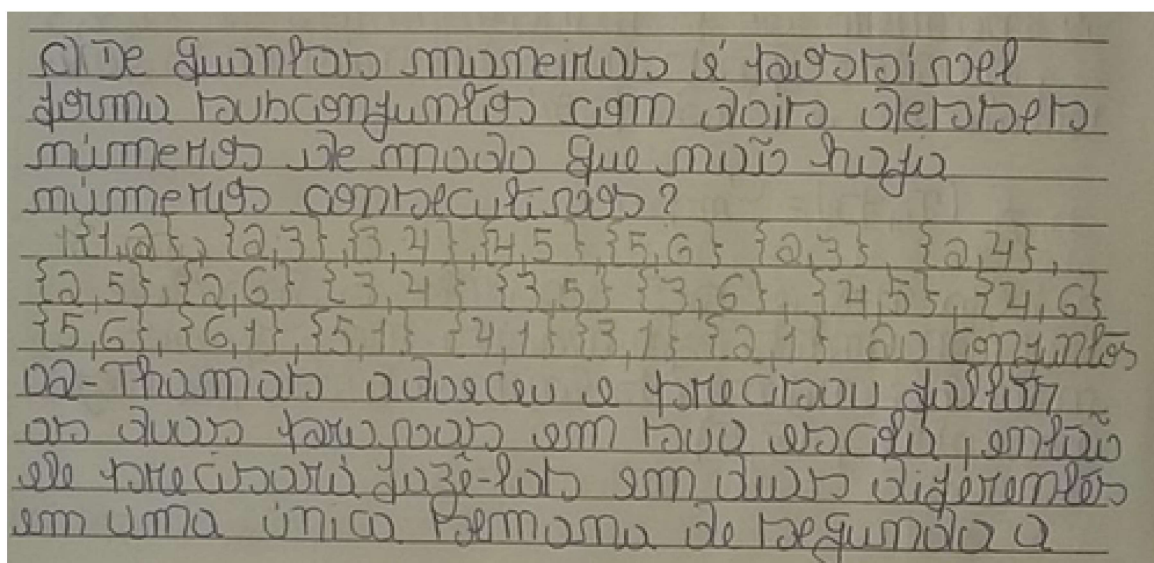 C) De quantas maneiras é possível
forma subconjuntos com dois desses
números de modo que não haja
números consecutivos?
{1,2}, {2,3}, {3,4}, {4,5} {5,6} {2,3}, {2,4},
{2,5}, {2,6} {3,4} {3,5} {3,6}, {4,5}, {4,6}
{5,6}, {6,1}, {5,1} {4,1} {3,1} {2,1} 20 conjuntos
02-Thamas adoeceu e precisou faltar
as duas provas em sua escola, então
ele precisará fazê-las em dias diferentes
em uma única semana de segunda a